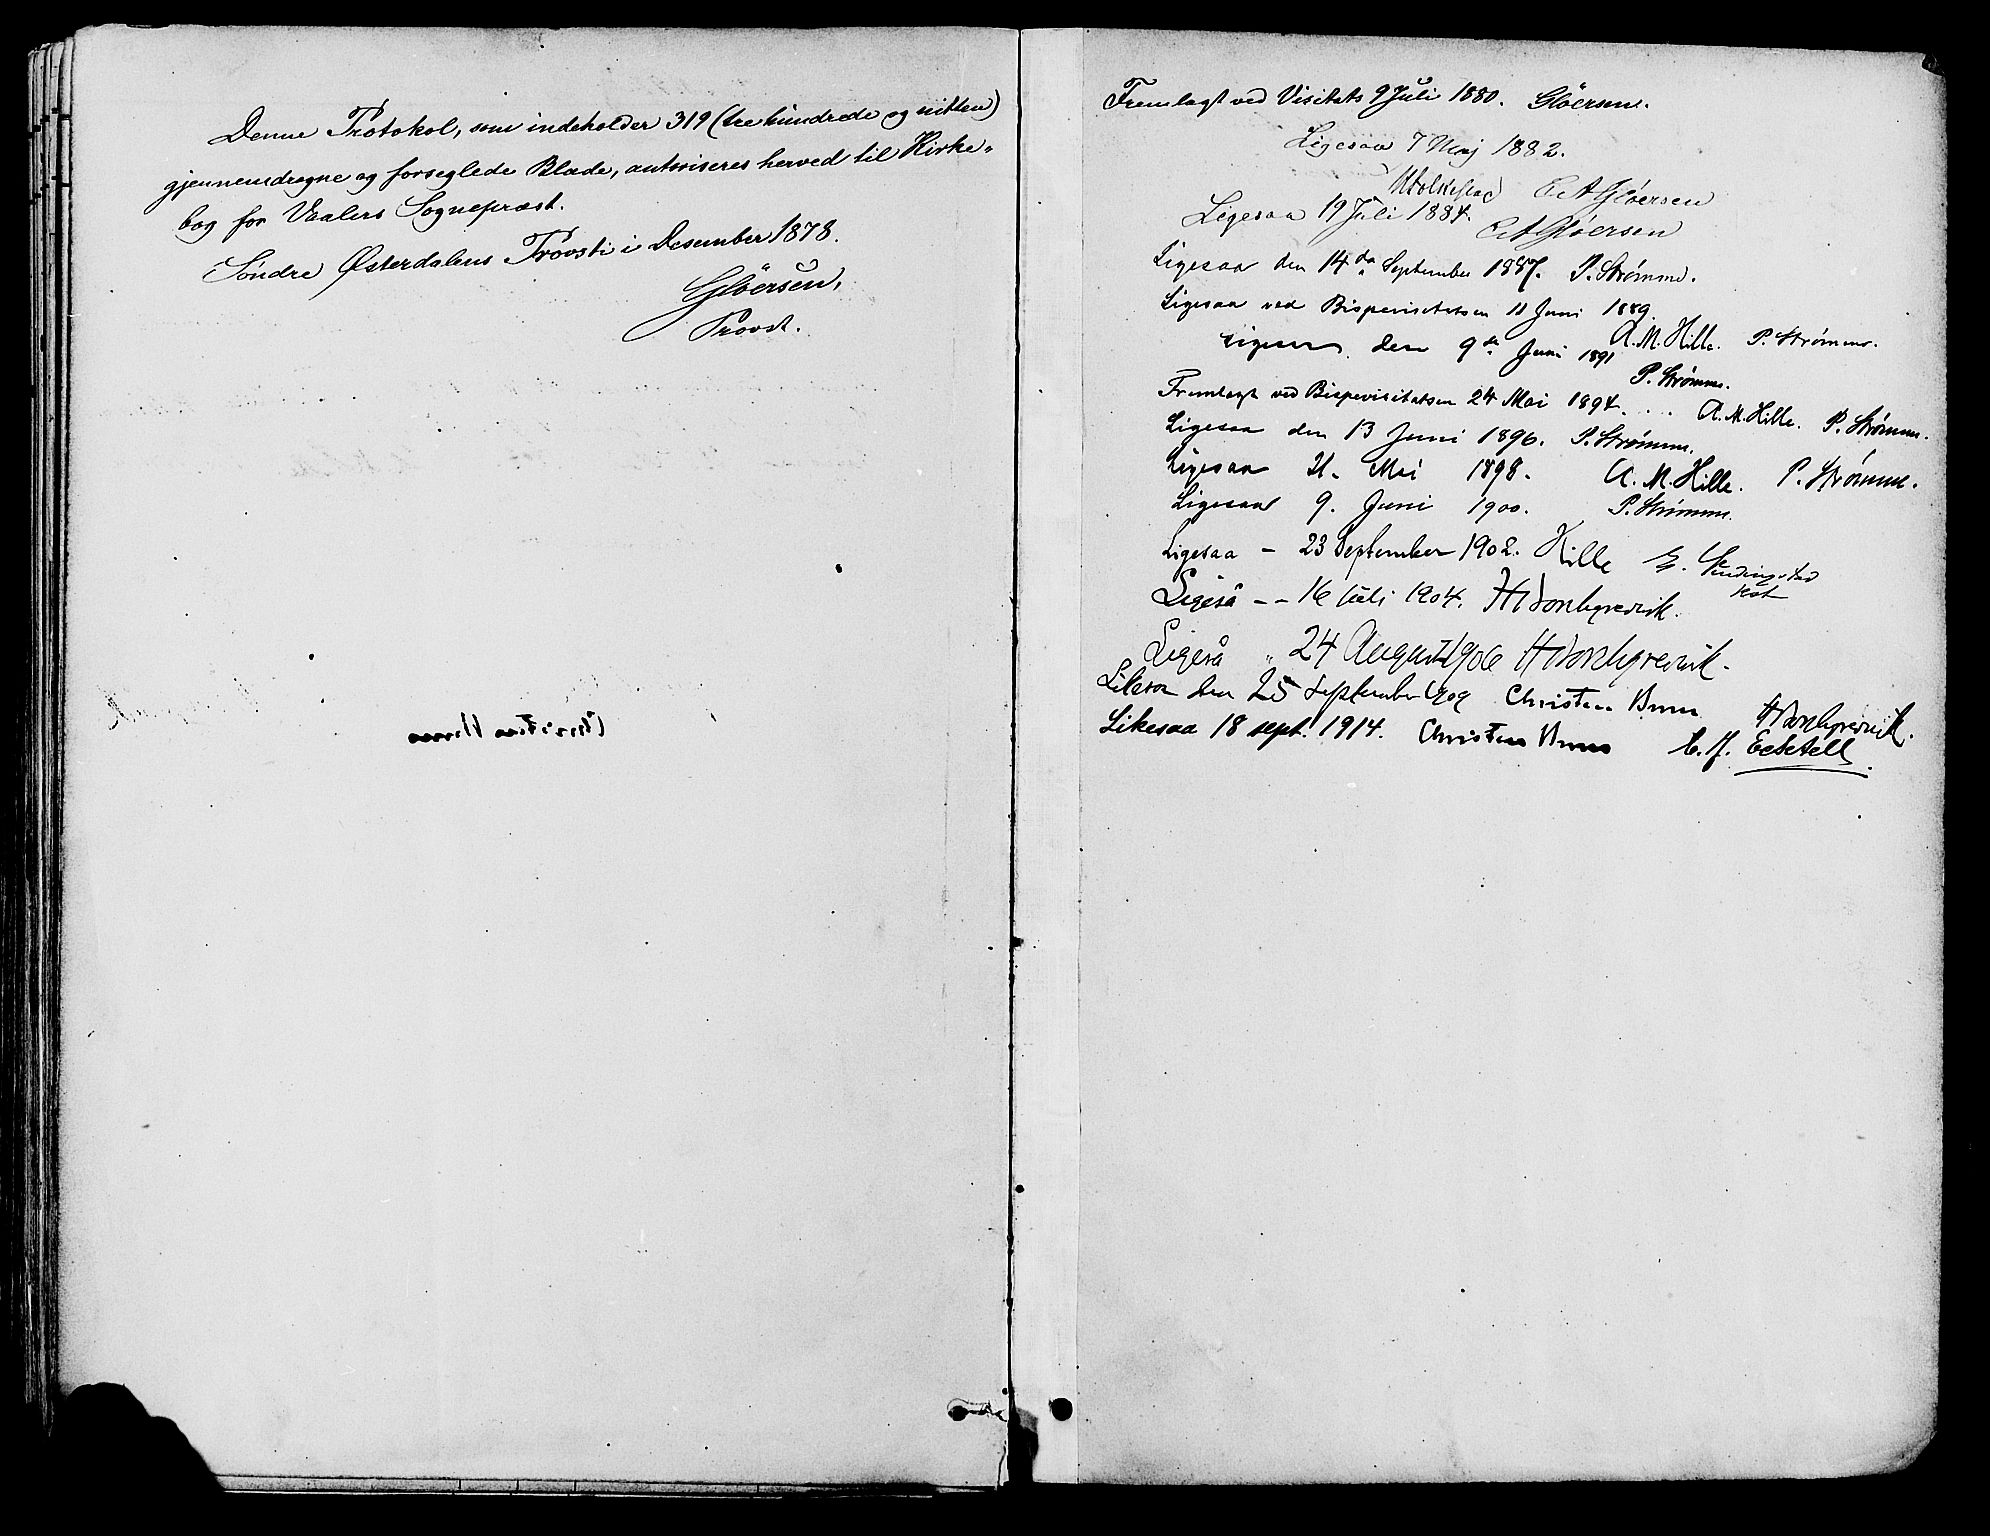 Denne Protokol, som indeholder 319 (tre hundrede og nitten)
gjennemdragne og forseglede Blade, autoriseres herved til Kirke-
bog for Vaalers Sognepræst.
Søndre Østerdalens Provsti i Desember 1878.
Gløersen,
Provst.
Fremlagt ved Visitats 9 Juli 1880. Gløersen.
Ligesaa 7 Maj 1882.
E A Gløersen
Ligesaa 19 Juli 1884.
E A Gløersen
Ligesaa den 14de September 1887. P. Strømme.
Ligesaa ved Bispevisitatsen 11 Juni 1889.
A. M. Hille. P. Strømme.
Ligesaa den 9de Juni 1891
P. Strømme.
Fremlagt ved Bispevisitatsen 24 Mai 1894. ... A. M. Hille. P. Strømme.
Ligesaa den 13 Juni 1896. P. Strømme.
Ligesaa 21. Mai 1898. A. M. Hille. P. Strømme.
Ligesaa 9. Juni 1900. P. Strømme.
Ligesaa - 23 September 1902. Hille
Ligeså - - 16 Juli 1904.
Ligeså " 24 August 1906
Likesaa den 25 September 1909 Christen Brun
Likesaa 18 sept. 1914. Christen Brun
Christen Brun